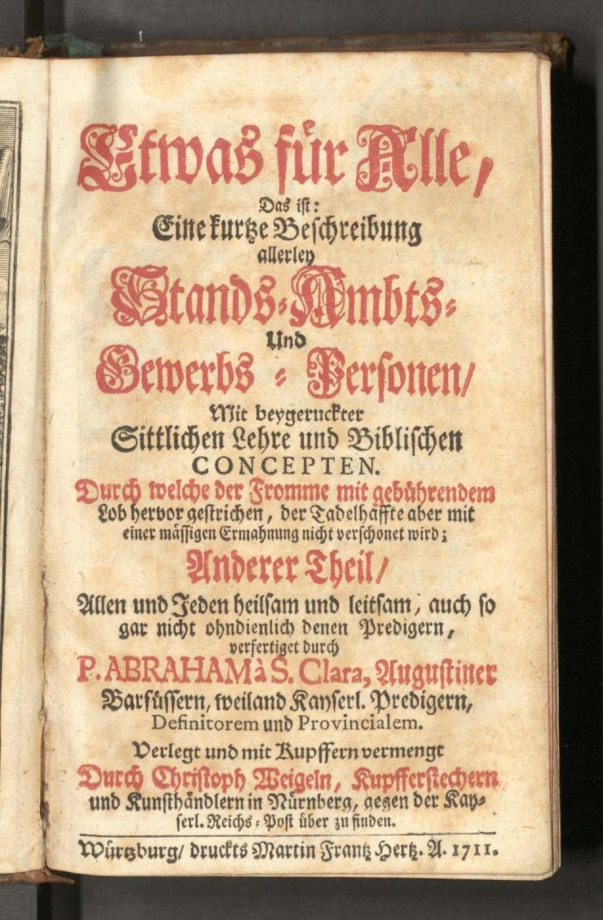 Etwas für Alle,
Das ist:
Eine kurtze Beschreibung
allerley
Stands-Ambts-
Und
Gewerbs - Personen/
Mit beygeruckter
Sittlichen Lehre und Biblischen
CONCEPTEN.
Durch welche der Fromme mit gebührendem
Lob hervor gestrichen, der Tadelhaffte aber mit
einer mässigen Ermahnung nicht verschonet wird;
Anderer Theil/
Allen und Jeden heilsam und leitsam, auch so
gar nicht ohndienlich denen Predigern,
verfertiget durch
P. ABRAHAM à S. Clara, Augustiner
Barfüssern, weiland Kayserl. Predigern,
Definitorem und Provincialem.
Verlegt und mit Kupffern vermengt
Durch Christoph Weigeln, Kupfferstechern
und Kunsthändlern in Nürnberg, gegen der Kay-
serl. Reichs-Post über zu finden.
Würtzburg/ druckts Martin Frantz Hertz. A. 1711.